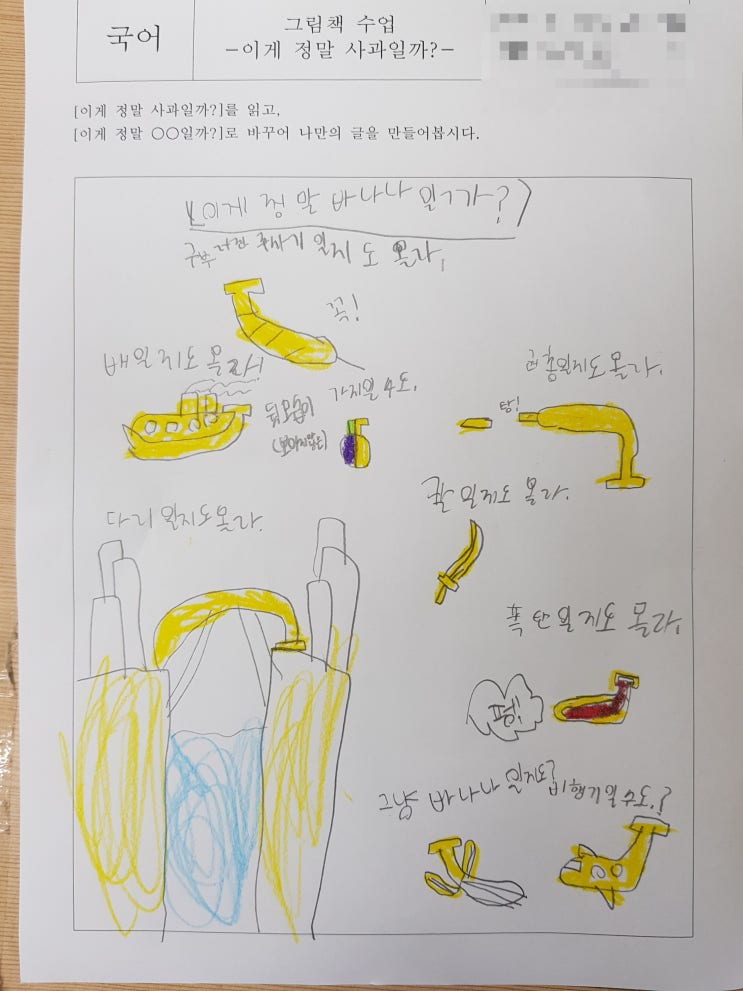 국어
그림책 수업
-이게 정말 사과일까?-
[이게 정말 사과일까?]를 읽고,
[이게 정말 ○○일까?]로 바꾸어 나만의 글을 만들어봅시다.
[이게 정말 바나나 일까?]
구부러진 주사기 일지도 몰라,
꼭!
배일지도 몰라!
뒤모습이
(보이지않는)
가지일 수도.
권총일지도 몰라.
탕!
칼 일지도 몰라.
다리 일지도 몰라.
폭탄일지도 몰라.
펑!
그냥 바나나 일지도?
비행기일 수도.?